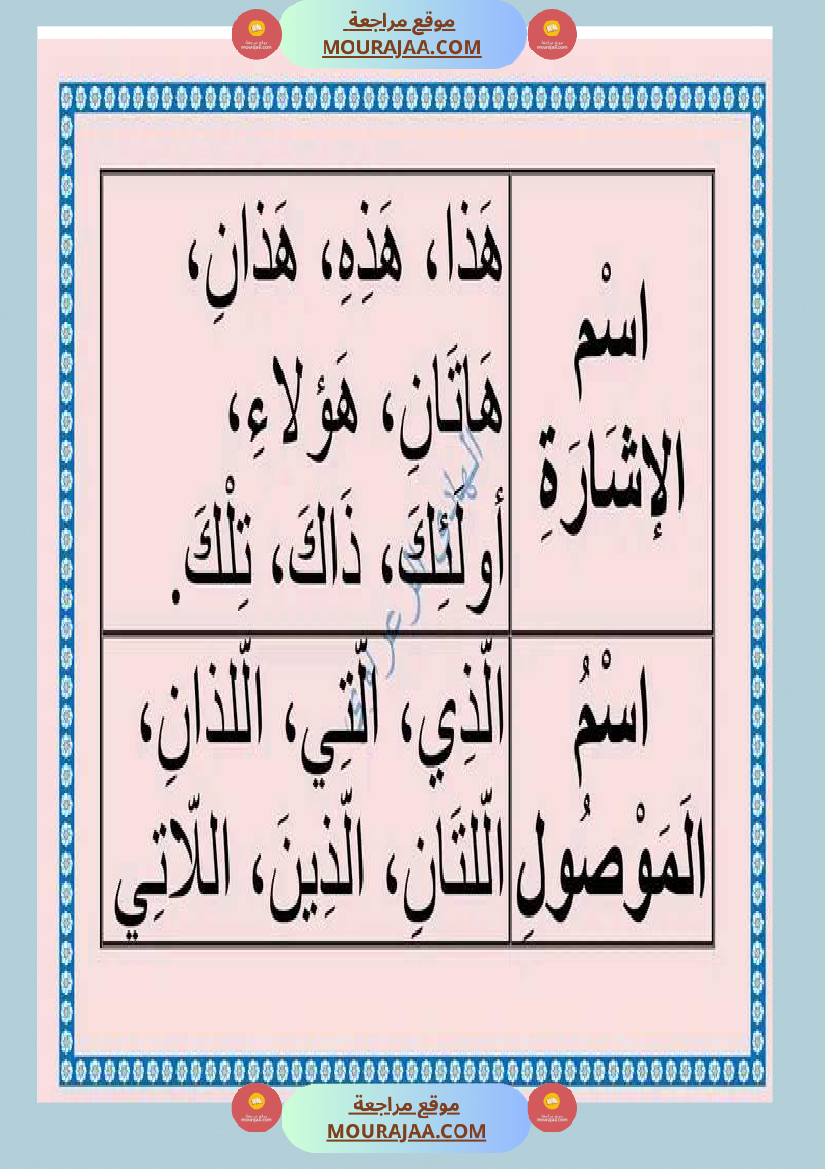 موقع مراجعة
MOURAJAA.COM
اسْم
الإشَارَةِ
هَذا، هَذِهِ، هَذانِ،
هَاتَانِ، هَؤلاءِ،
أولَئِكَ، ذَاكَ، تِلْكَ.
اسْمُ
الَمَوْصُولِ
الّذِي، الّتِي، الّلذانِ،
الّلتَانِ، الّذِينَ، اللّاتِي
موقع مراجعة
MOURAJAA.COM